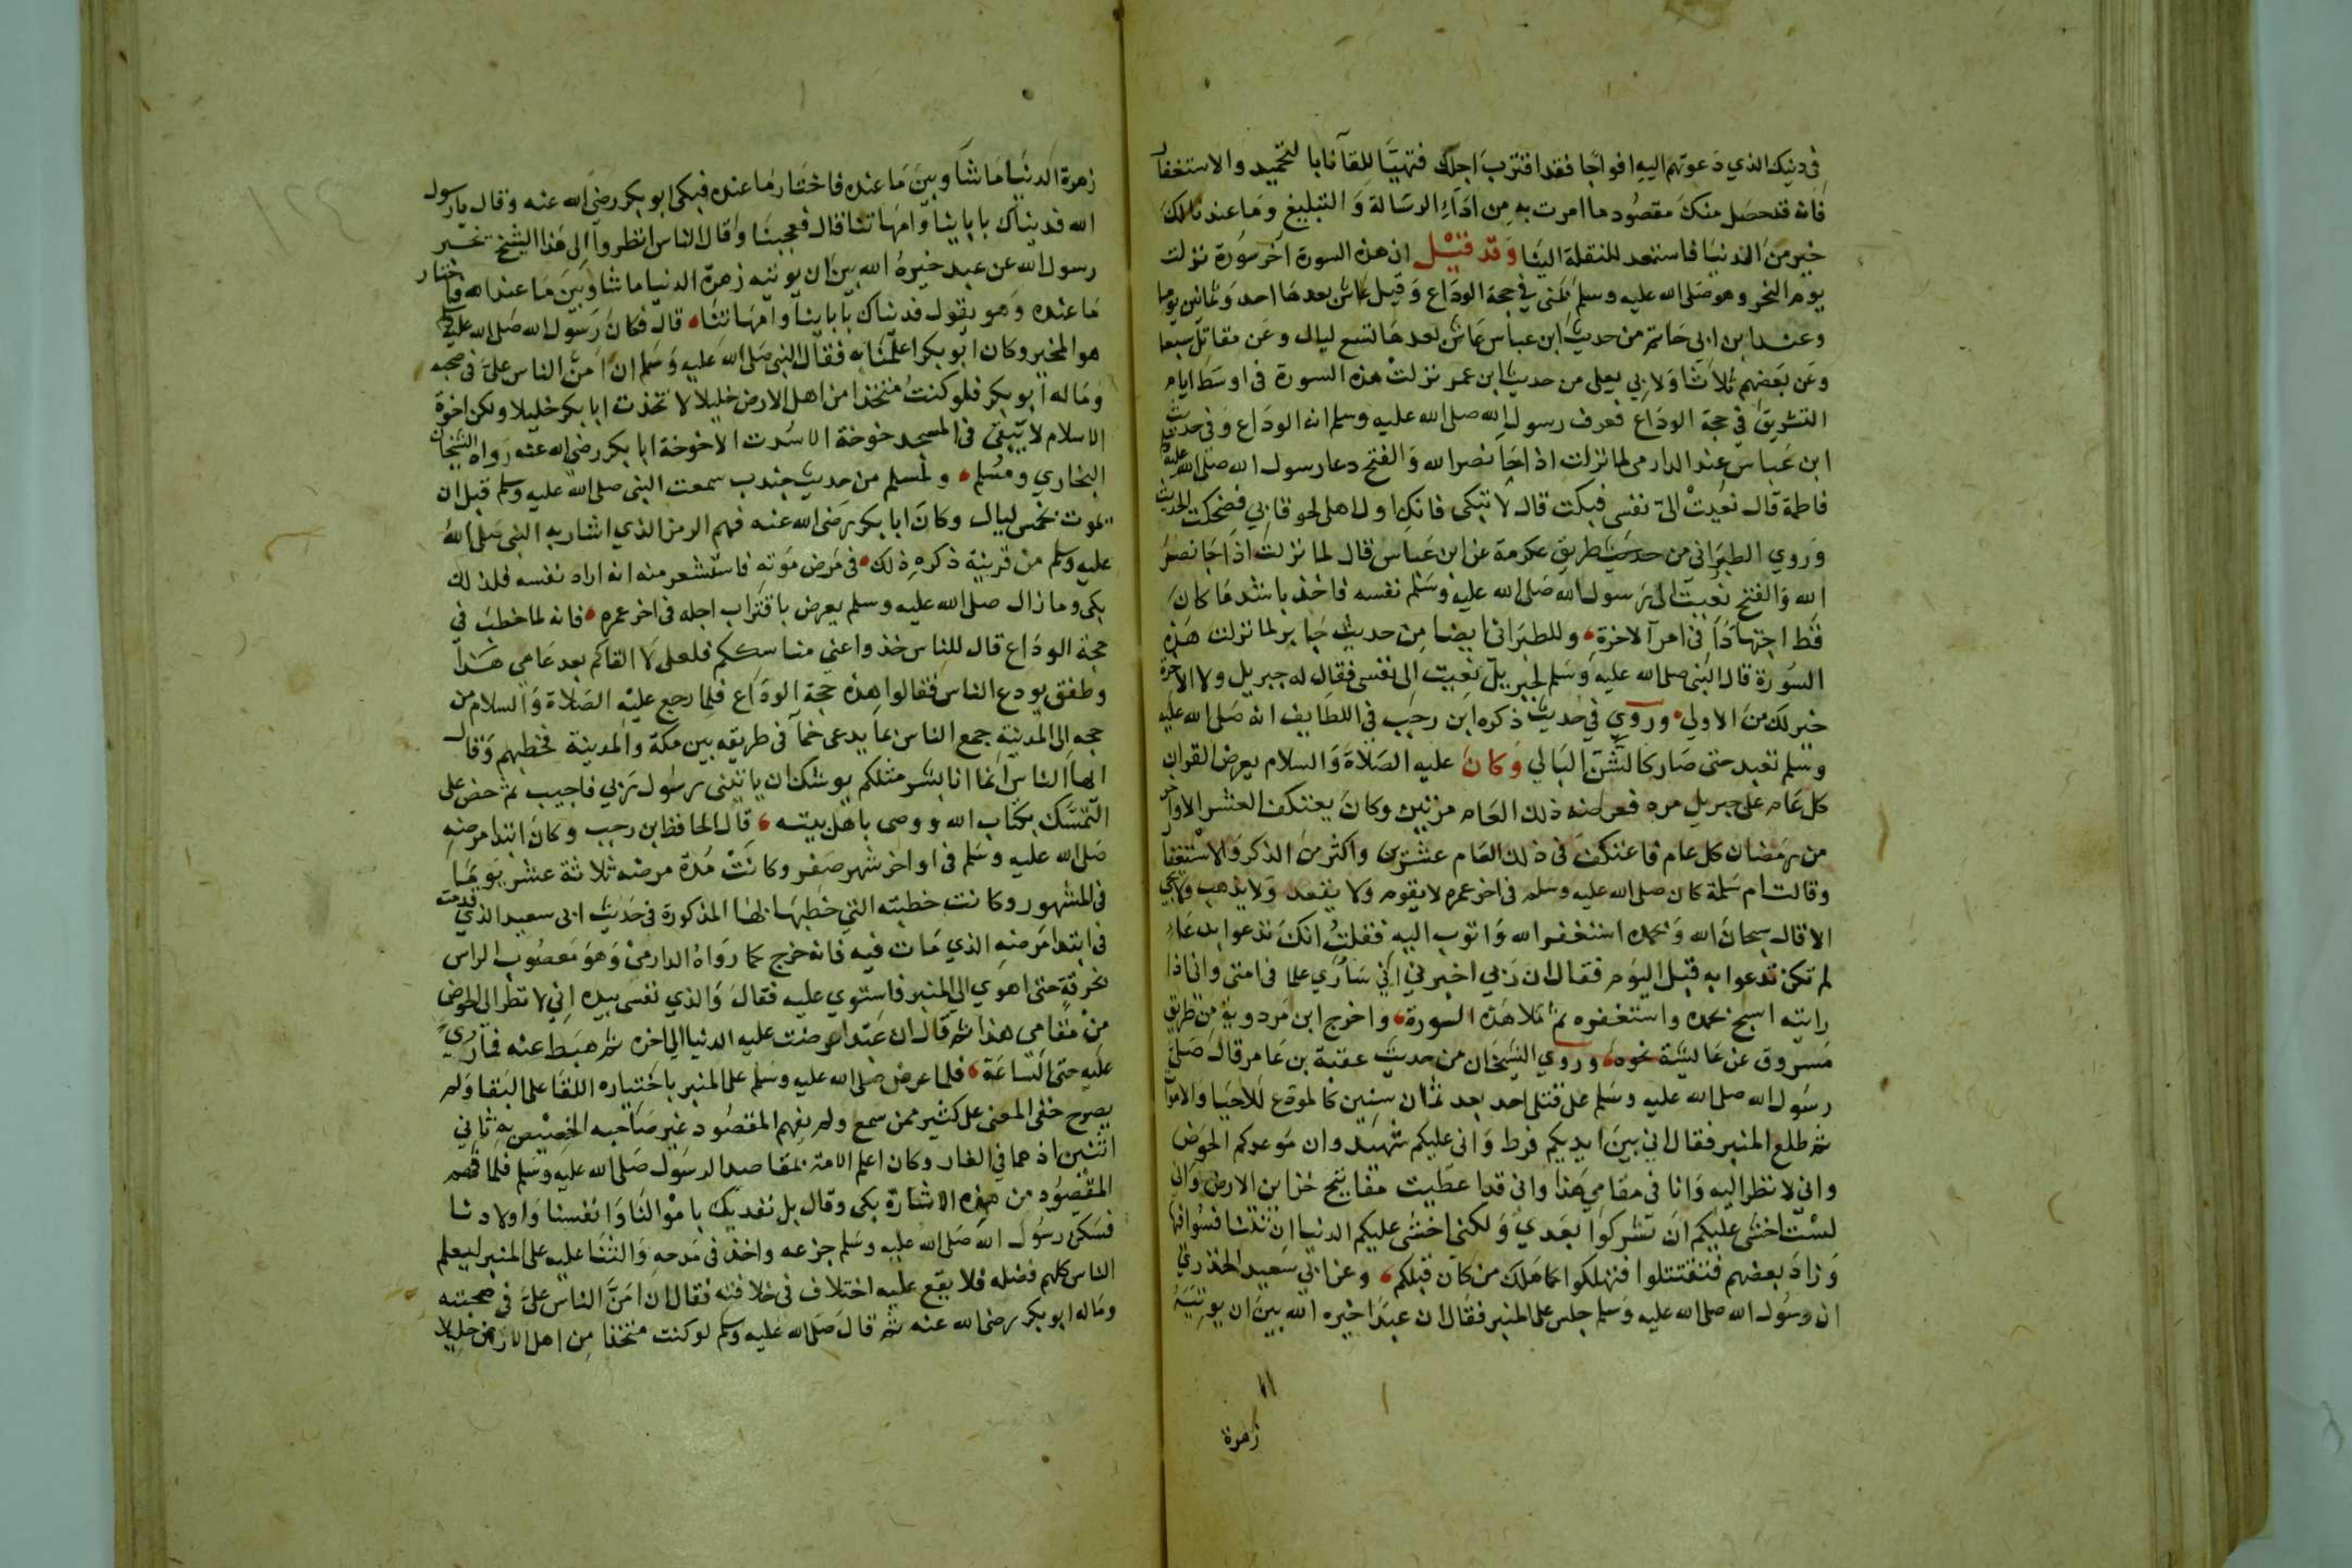 في دينك الذي دعوتهم اليه افواجا فقد اقترب اجلك فتهيا للقآئنا بالتحميد والاستغفار
فانه قد حصل منك مقصود ما امرت به من اداء الرسالة والتبليغ وما عندنا لك
خير من الدنيا فاستعد للنقلة الينا وقد قيل ان هذه السورة اخر سورة نزلت
يوم النحر وهو صلى الله عليه وسلم بمنى في حجة الوداع وقيل عاش بعدها احد وثمانين يوما
وعند ابن ابي حاتم من حديث ابن عباس عاش بعدها تسع ليال وعن مقاتل سبعا
وعن بعضهم ثلاثا ولابي يعلى من حديث ابن عمر نزلت هذه السورة في اوسط ايام
التشريق في حجة الوداع فعرف رسول الله صلى الله عليه وسلم انه الوداع وفي حديث
ابن عباس عند الدارمي لما نزلت اذا جا نصر الله والفتح دعا رسول الله صلى الله عليه وسلم
فاطمة قال نعيت الي نفسي فبكت قال لا تبكي فانك اول اهلي لحوقا بي فضحكت الحديث
وروي الطبراني من حديث طريق عكرمة عن ابن عباس قال لما نزلت اذا جا نصر
الله والفتح نعيت الى رسول الله صلى الله عليه وسلم نفسه فاخذ باشد ما كان
قط اجتهادا في امر الاخرة وللطبراني ايضا من حديث جابر لما نزلت هذه
السورة قال النبي صلى الله عليه وسلم لجبريل نعيت الى نفسي فقال له جبريل وللاخرة
خير لك من الاولى وروي في حديث ذكره ابن رجب في اللطايف انه صلى الله عليه
وسلم تعبد حتى صار كالشن البالي وكان عليه الصلاة والسلام يعرض القران
كل عام على جبريل مره فعرضه ذلك العام مرتين وكان يعتكف العشر الاواخر
من رمضان كل عام فاعتكف في ذلك العام عشرين واكثر من الذكر والاستغفار
وقالت ام سلمة كان صلى الله عليه وسلم في اخر عمره لا يقوم ولا يقعد ولا يذهب ولا يجي
الا قال سبحان الله وبحمده استغفر الله واتوب اليه فقلت انك تدعوا بدعاء
لم تكن تدعوا به قبل اليوم فقال ان ربي اخبرني اني ساري علما في امتي واني اذا
رايته اسبح بحمده واستغفره ثم تلا هذه السورة واخرج ابن مردوية من طريق
مسروق عن عايشة نحوه وروي الشيخان من حديث عقبة بن عامر قال صلى
رسول الله صلى الله عليه وسلم على قتلى احد بعد ثمان سنين كالمودع للاحيا والاموا
ثم طلع المنبر فقال اني بين ايديكم فرط واني عليكم شهيد وان موعدكم الحوض
واني لا نظر اليه وانا في مقامي هذا واني قد اعطيت مفاتيح خزاين الارض واني
لست اخشى عليكم ان تشركوا بعدي ولكني اخشى عليكم الدنيا ان تنافسوا فيها
وزاد بعضهم فتقتتلوا فتهلكوا كما هلك من كان قبلكم وعن ابي سعيد الخدري
ان رسول الله صلى الله عليه وسلم جلس على المنبر فقال ان عبدا خيره الله بين ان يوتيه
زهرة
زهرة الدنيا ما شآ وبين ما عنده فاختار ما عنده فبكى ابو بكر رضي الله عنه وقال يارسول
الله فديناك باباينا وامهاتنا قال فعجبنا وقال الناس انظروا الى هذا الشيخ يخبر
رسول الله عن عبد خيره الله بين ان يوتيه زهرة الدنيا ما شا وبين ما عند الله فاختار
ما عنده وهو يقول فديناك باباينا وامهاتنا قال فكان رسول الله صلى الله عليه وسلم
هو المخير وكان ابو بكر اعلمنا به فقال النبي صلى الله عليه وسلم ان امن الناس علي في صحبه
وماله ابو بكر فلو كنت متخذا من اهل الارض خليلا لاتخذت ابا بكر خليلا ولكن اخوة
الاسلام لا يبقى في المسجد خوخة الا سدت الا خوخة ابا بكر رضي الله عنه رواه الشيخان
البخاري ومسلم ولمسلم من حديث جندب سمعت النبي صلى الله عليه وسلم قبل ان
يموت بخمس ليال وكان ابا بكر رضي الله عنه فهم الرمز الذي اشار به النبي صلى الله
عليه وسلم من قرينة ذكره ذلك في مرض موته فاستشعر منه انه اراد نفسه فلذلك
بكى وما زال صلى الله عليه وسلم يعرض باقتراب اجله في اخر عمره فانه لما خطب في
حجة الوداع قال للناس خذوا عني مناسككم فلعلي لا القاكم بعد عامي هذا
وطفق يودع الناس فقالوا هذه حجة الوداع فلما رجع عليه الصلاة والسلام من
حجه الى المدينة جمع الناس بما يدعى خما في طريقه بين مكة والمدينة فخطبهم وقال
ايها الناس انما انا بشر مثلكم يوشك ان ياتيني رسول ربي فاجيب ثم حض على
التمسك بكتاب الله ووصى باهل بيته قال الحافظ ابن رجب وكان ابتدا مرضه
صلى الله عليه وسلم في اواخر شهر صفر وكانت مدة مرضه ثلاثة عشر يوما
في المشهور وكانت خطبته التي خطبها بها المذكورة في حديث ابي سعيد الذي قدمته
في ابتدا مرضه الذي مات فيه فانه خرج كما رواه الدارمي وهو معصوب الراس
بخرقة حتى اهوي الى المنبر فاستوي عليه فقال والذي نفسي بيده اني لا نظر الى الحوض
من مقامي هذا ثم قال ان عبدا عرضت عليه الدنيا الى اخره ثم هبط عنه فما رؤي
عليه حتى الساعة فلما عرض صلى الله عليه وسلم على المنبر باختياره اللقا على البقا ولم
يصرح خفي المعنى على كثير ممن سمع ولم يفهم المقصود غير صاحبه الخصيص به ثاني
اثنين اذ هما في الغار وكان اعلم الامة بمقاصد الرسول صلى الله عليه وسلم فلما فهم
المقصود من هذه الاشارة بكى وقال بل نفديك باموالنا وانفسنا واولادنا
فسكن رسول الله صلى الله عليه وسلم جزعه واخذ في مدحه والثنا عليه على المنبر ليعلم
الناس كلهم فضله فلا يقع عليه اختلاف في خلافته فقال ان امن الناس علي في صحبته
وماله ابو بكر رضي الله عنه ثم قال صلى الله عليه وسلم لو كنت متخذا من اهل الارض خليلا